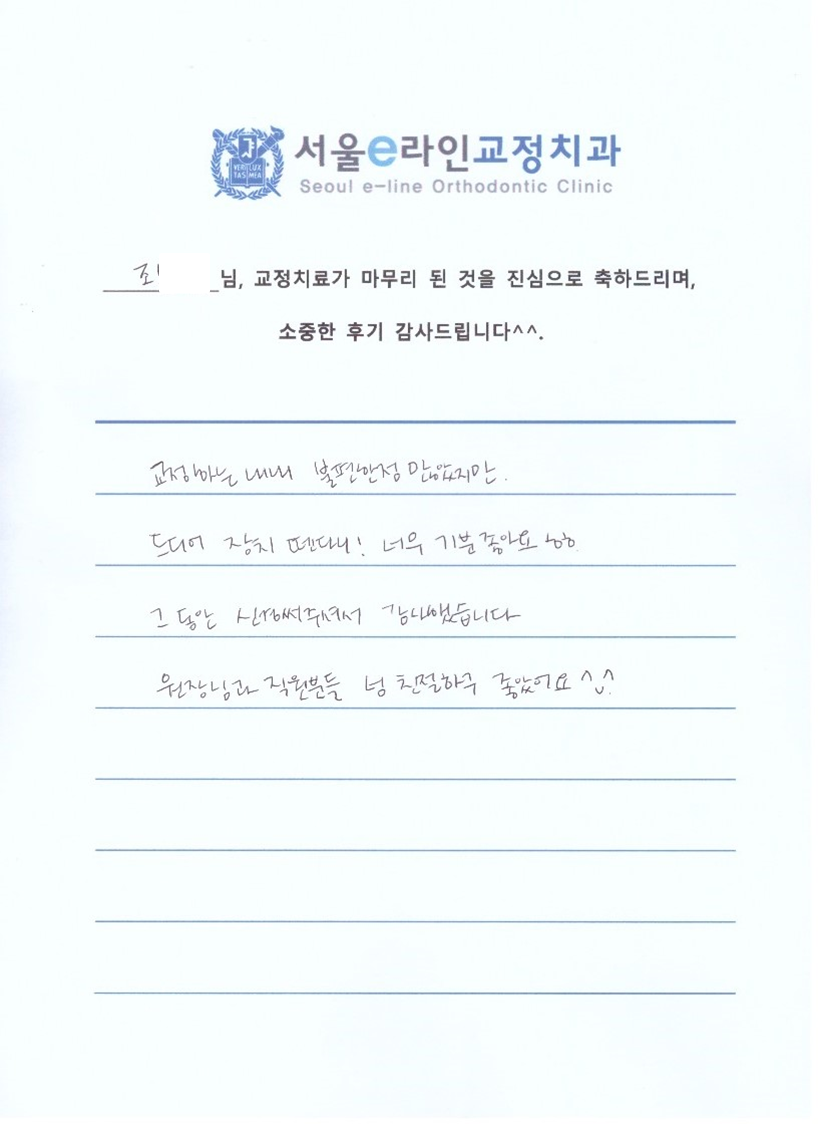 VERI LUX
TAS MEA
서울e라인교정치과
Seoul e-line Orthodontic Clinic
님, 교정치료가 마무리 된 것을 진심으로 축하드리며,
소중한 후기 감사드립니다^^.
교정하는 내내 불편한점 많았지만.
드디어 장치 뗀다니! 너무 기분좋아요 ㅎㅎ
그동안 신경써주셔서 감사했습니다
원장님과 직원분들 넝 친절하구 좋았어요 ^^